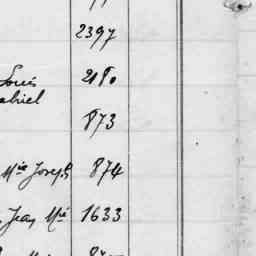 2397
Louis 2180
abriel
873
Mie Joseph 874
Jean Mie 1633